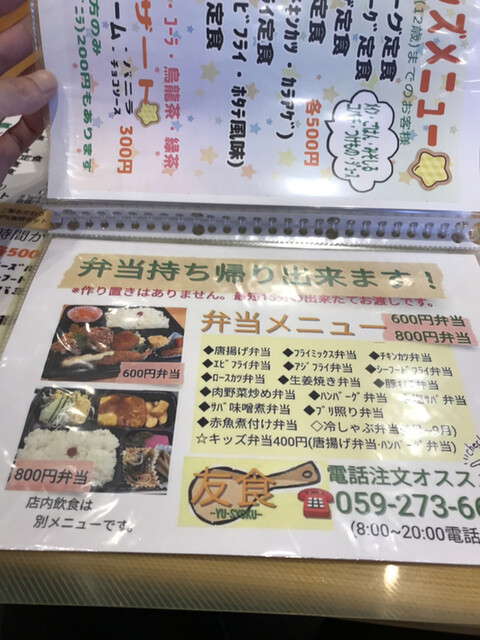 ズメニュー
(12歳)までのお客様
ーグ定食
ーグ定食
定食
キンカツ・カラアゲ)
各500円
ビフライ・ホタテ風味)
定食
ザート
・コーラ・烏龍茶・緑茶
ーム・バニラ
・チョコソース
300円
方のみ
ニラ)200円もあります
弁当持ち帰り出来ます！
※作り置きはありません。 出来たてお渡しです。
弁当メニュー
600円弁当
800円弁当
◆唐揚げ弁当 ◆フライミックス弁当 ◆チキンカツ弁当
◆エビフライ弁当 ◆アジフライ弁当 ◆シーフードフライ弁当
◆ロースカツ弁当 ◆生姜焼き弁当
◆肉野菜炒め弁当 ◆ハンバーグ弁当 サバ弁当
◆サバ味噌煮弁当 ◆ブリ照り弁当
◆赤魚煮付け弁当 ◇冷しゃぶ弁当 9月)
☆キッズ弁当400円(唐揚げ弁当・ハンバーグ弁当)
600円弁当
800円弁当
店内飲食は
別メニューです。
友食
-YU-SYOKU-
電話注文オスス
☎059-273-66
(8:00~20:00電話